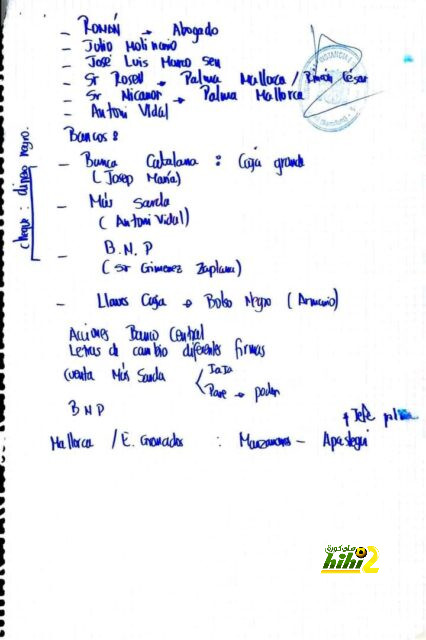 - ROMÁN → Abogado
- Julio Molinario
- José Luis Marco Seu
- Sr Rosell → Palma Mallorca / Román César
- Sr Nicanor → Palma Mallorca
- Antoni Vidal
Bancos:
- Banca Catalana : Caja grande
(Josep María)
- Más Sarda
(Antoni Vidal)
- B.N.P
(Sr Gimenez Zaplana)
- Llaves Caja → Bolso Negro (Armario)
cheque: dinero negro.
Acciones Banco Central
Letras de cambio diferentes firmas
Cuenta Más Sarda
TATA
Pare → poder
BNP
+ Jefe
Mallorca / E. Granados : Manzanares - Apastegui
هاي كورة
hihi2